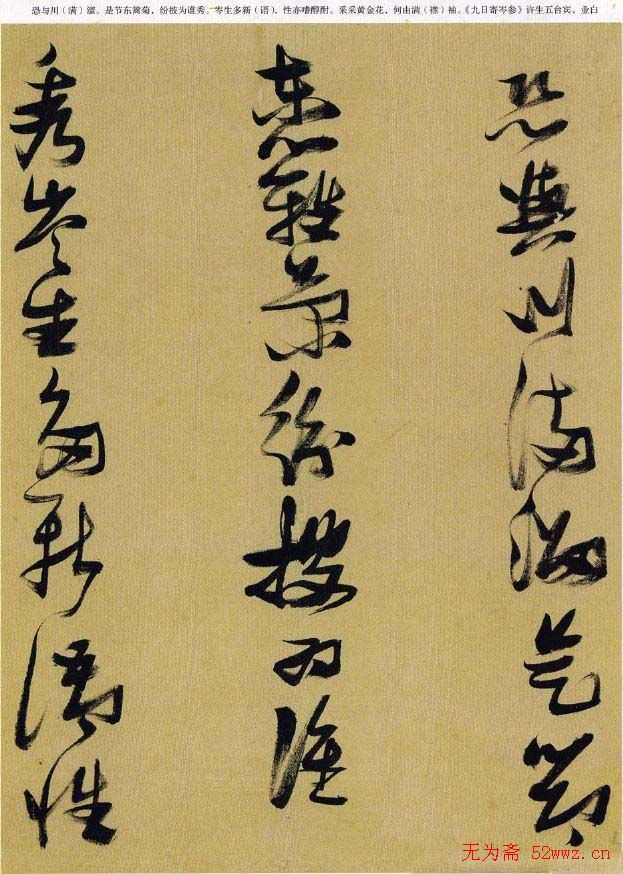 恐与川（满）溜。是节东篱菊，纷披为谁秀。岑生多新（语），性亦嗜醇酎。采采黄金花，何由满（襟）袖。《九日寄岑参》许生五台宾，业白
恐与川满溜是节
东篱菊纷披为谁
秀岑生多新语性
无为斋 52wwz.cn